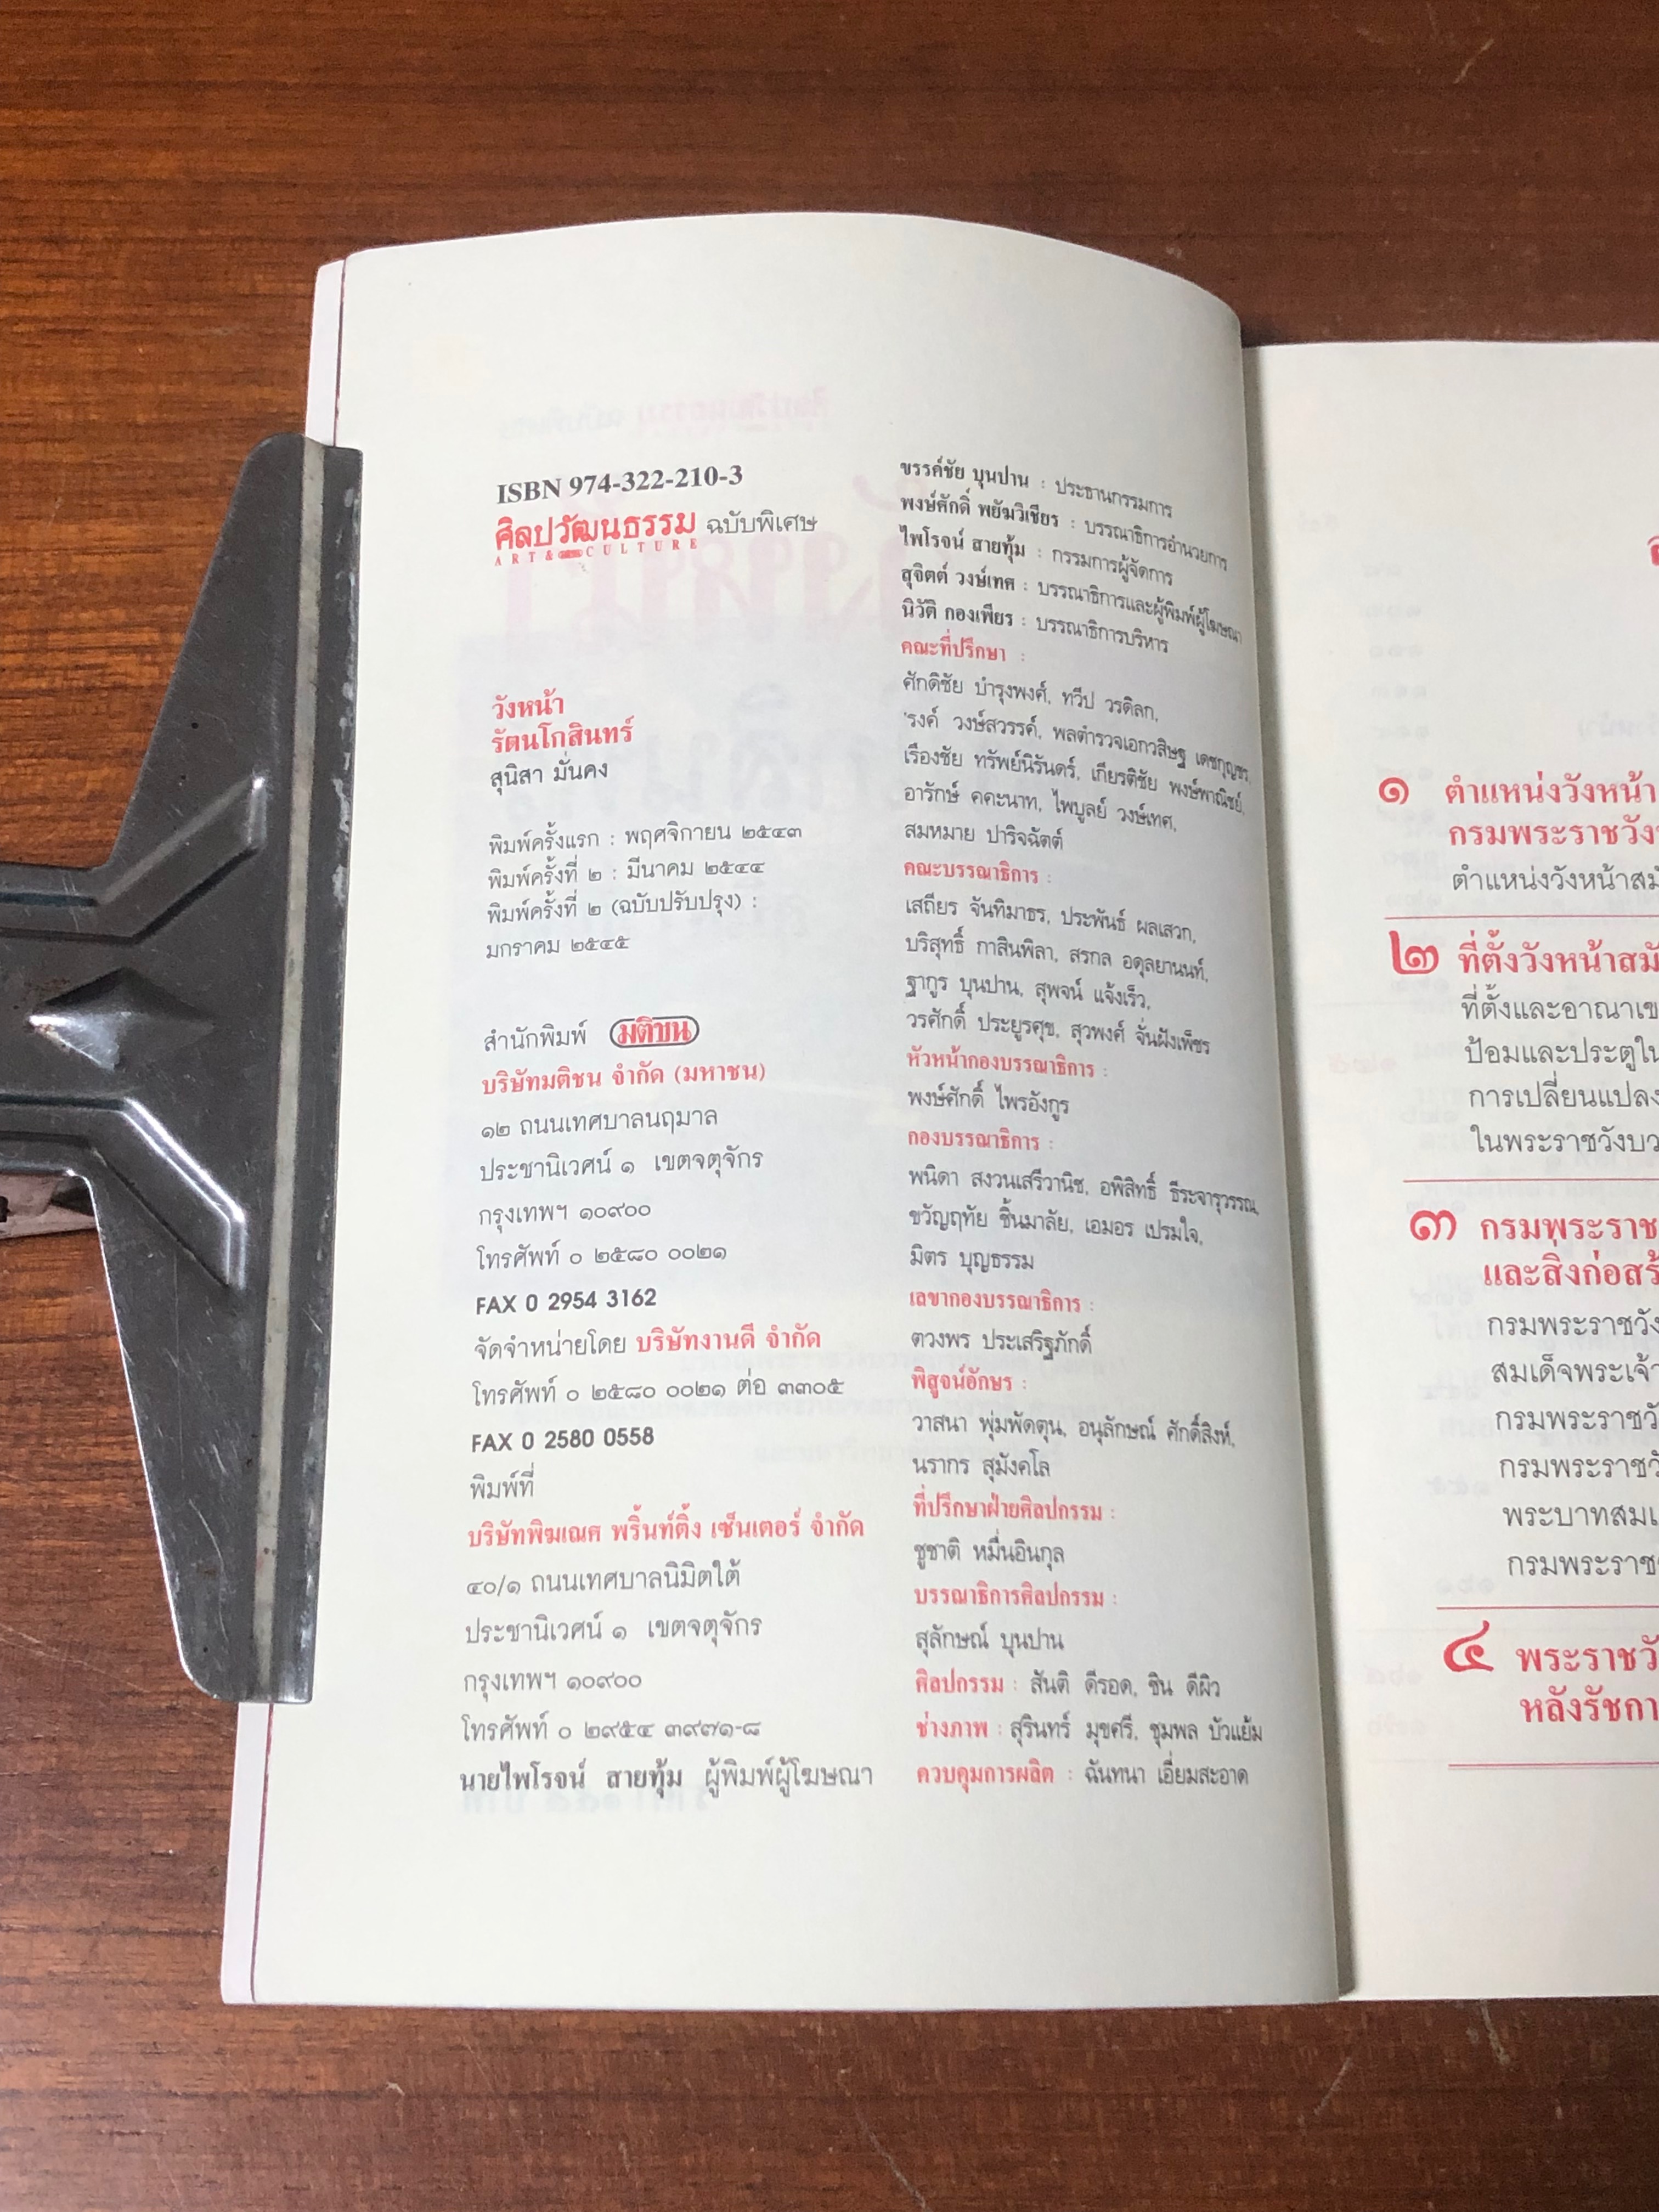 ISBN 974-322-210-3
ศิลปวัฒนธรรม ฉบับพิเศษ
ART & CULTURE
วังหน้า
รัตนโกสินทร์
สุนิสา มั่นคง
พิมพ์ครั้งแรก : พฤศจิกายน ๒๕๔๓
พิมพ์ครั้งที่ ๒ : มีนาคม ๒๕๔๔
พิมพ์ครั้งที่ ๒ (ฉบับปรับปรุง) :
มกราคม ๒๕๔๕
สำนักพิมพ์ มติชน
บริษัทมติชน จำกัด (มหาชน)
๑๒ ถนนเทศบาลนฤมาล
ประชานิเวศน์ ๑ เขตจตุจักร
กรุงเทพฯ ๑๐๙๐๐
โทรศัพท์ ๐ ๒๕๘๐ ๐๐๒๑
FAX 0 2954 3162
จัดจำหน่ายโดย บริษัทงานดี จำกัด
โทรศัพท์ ๐ ๒๕๘๐ ๐๐๒๑ ต่อ ๓๓๐๕
FAX 0 2580 0558
พิมพ์ที่
บริษัทพิฆเณศ พริ้นท์ติ้ง เซ็นเตอร์ จำกัด
๔๐/๑ ถนนเทศบาลนิมิตใต้
ประชานิเวศน์ ๑ เขตจตุจักร
กรุงเทพฯ ๑๐๙๐๐
โทรศัพท์ ๐ ๒๙๕๔ ๓๙๗๑-๘
นายไพโรจน์ สายทุ้ม ผู้พิมพ์ผู้โฆษณา
ขรรค์ชัย บุนปาน : ประธานกรรมการ
พงษ์ศักดิ์ พยัฆวิเชียร : บรรณาธิการอำนวยการ
ไพโรจน์ สายทุ้ม : กรรมการผู้จัดการ
สุจิตต์ วงษ์เทศ : บรรณาธิการและผู้พิมพ์ผู้โฆษณา
นิวัติ กองเพียร : บรรณาธิการบริหาร
คณะที่ปรึกษา :
ศักดิชัย บำรุงพงศ์, ทวีป วรดิลก,
'รงค์ วงษ์สวรรค์, พลตำรวจเอกวสิษฐ เดชกุญชร,
เรืองชัย ทรัพย์นิรันดร์, เกียรติชัย พงษ์พาณิชย์,
อารักษ์ คคะนาท, ไพบูลย์ วงษ์เทศ,
สมหมาย ปาริจฉัตต์
คณะบรรณาธิการ :
เสถียร จันทิมาธร, ประพันธ์ ผลเสวก,
บริสุทธิ์ กาสินพิลา, สรกล อดุลยานนท์,
ฐากูร บุนปาน, สุพจน์ แจ้งเร็ว,
วรศักดิ์ ประยูรศุข, สุวพงศ์ จั่นฝังเพ็ชร
หัวหน้ากองบรรณาธิการ :
พงษ์ศักดิ์ ไพรอังกูร
กองบรรณาธิการ :
พนิดา สงวนเสรีวานิช, อพิสิทธิ์ ธีระจารุวรรณ,
ขวัญฤทัย ชิ้นมาลัย, เอมอร เปรมใจ,
มิตร บุญธรรม
เลขากองบรรณาธิการ :
ตวงพร ประเสริฐภักดิ์
พิสูจน์อักษร :
วาสนา พุ่มพัดตุน, อนุลักษณ์ ศักดิ์สิงห์,
นรากร สุมังคโล
ที่ปรึกษาฝ่ายศิลปกรรม :
ชูชาติ หมื่นอินกุล
บรรณาธิการศิลปกรรม :
สุลักษณ์ บุนปาน
ศิลปกรรม : สันติ ดีรอด, ชิน ดีผิว
ช่างภาพ : สุรินทร์ มุขศรี, ชุมพล บัวแย้ม
ควบคุมการผลิต : ฉันทนา เอี่ยมสะอาด
๑ ตำแหน่งวังหน้า
กรมพระราชวัง
ตำแหน่งวังหน้าสมั
๒ ที่ตั้งวังหน้าสมั
ที่ตั้งและอาณาเข
ป้อมและประตูใน
การเปลี่ยนแปลง
ในพระราชวังบว
๓ กรมพระราช
และสิ่งก่อสร้
กรมพระราชวัง
สมเด็จพระเจ้า
กรมพระราชวั
กรมพระราชวั
พระบาทสมเ
กรมพระราช
๔ พระราชวั
หลังรัชกา